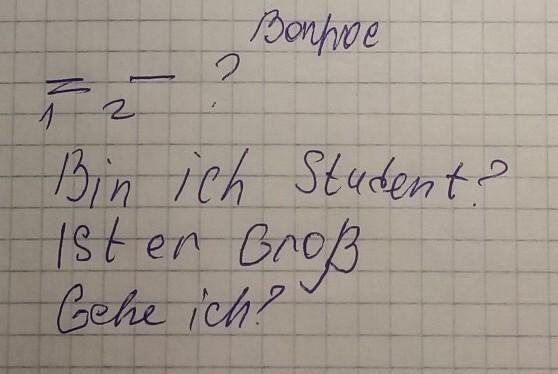 Вопрос
= — ?
1 2
Bin ich Student?
Ist er Groß
Gehe ich?